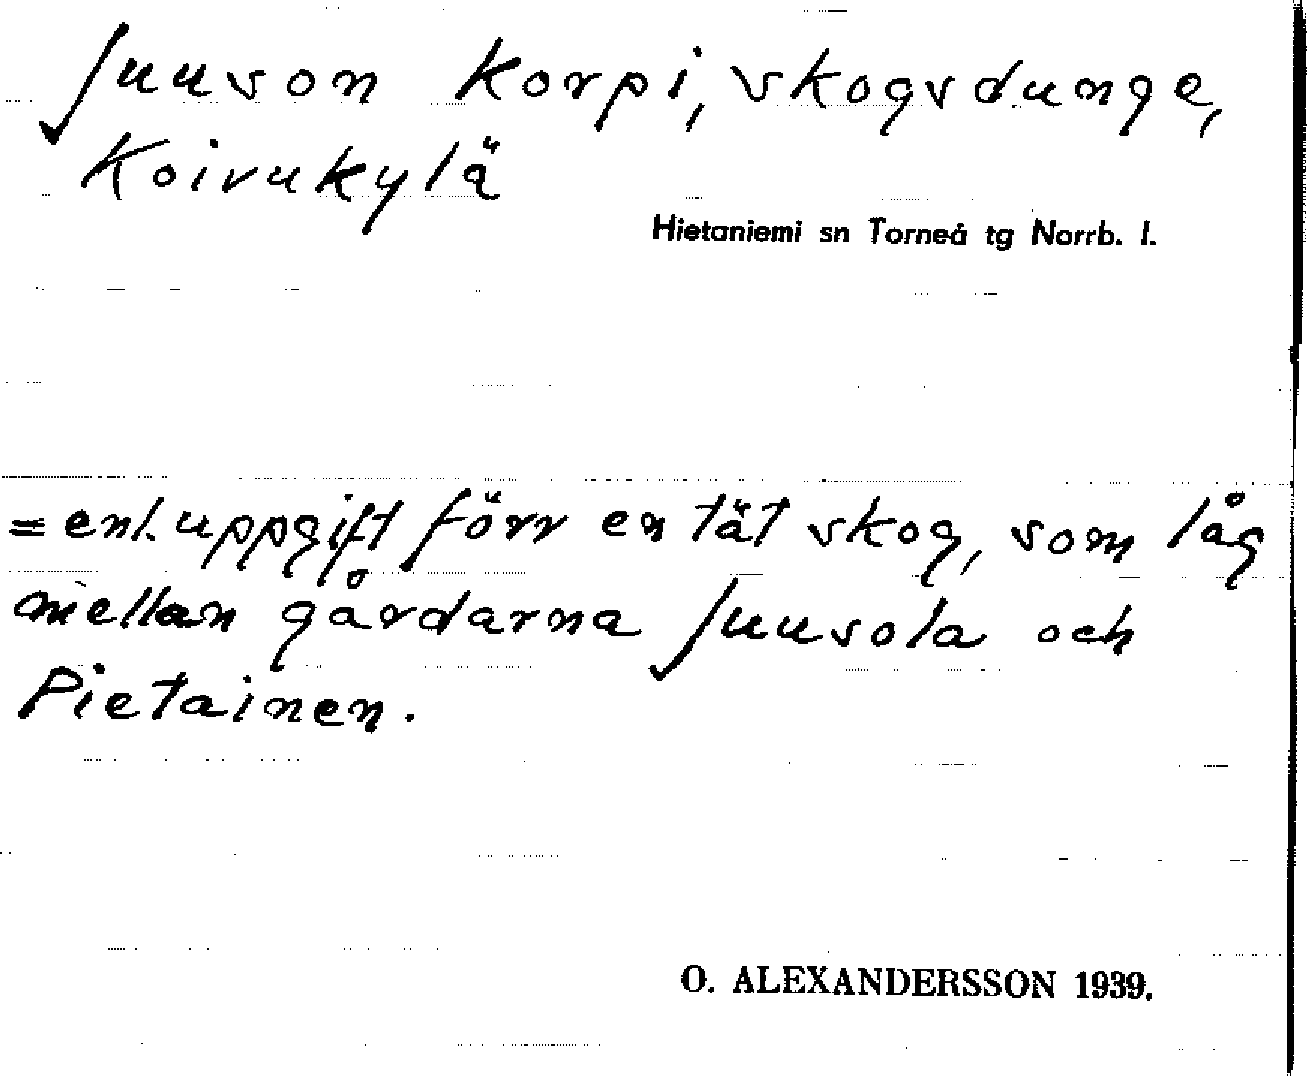 Juuson korpi, skogsdunge,
Koivukylä
Hietaniemi sn Torneå tg Norrb. l.
= enl. uppgift förr en tät skog, som låg
mellan gårdarna Juusola och
Pietainen.
O. ALEXANDERSSON 1939.